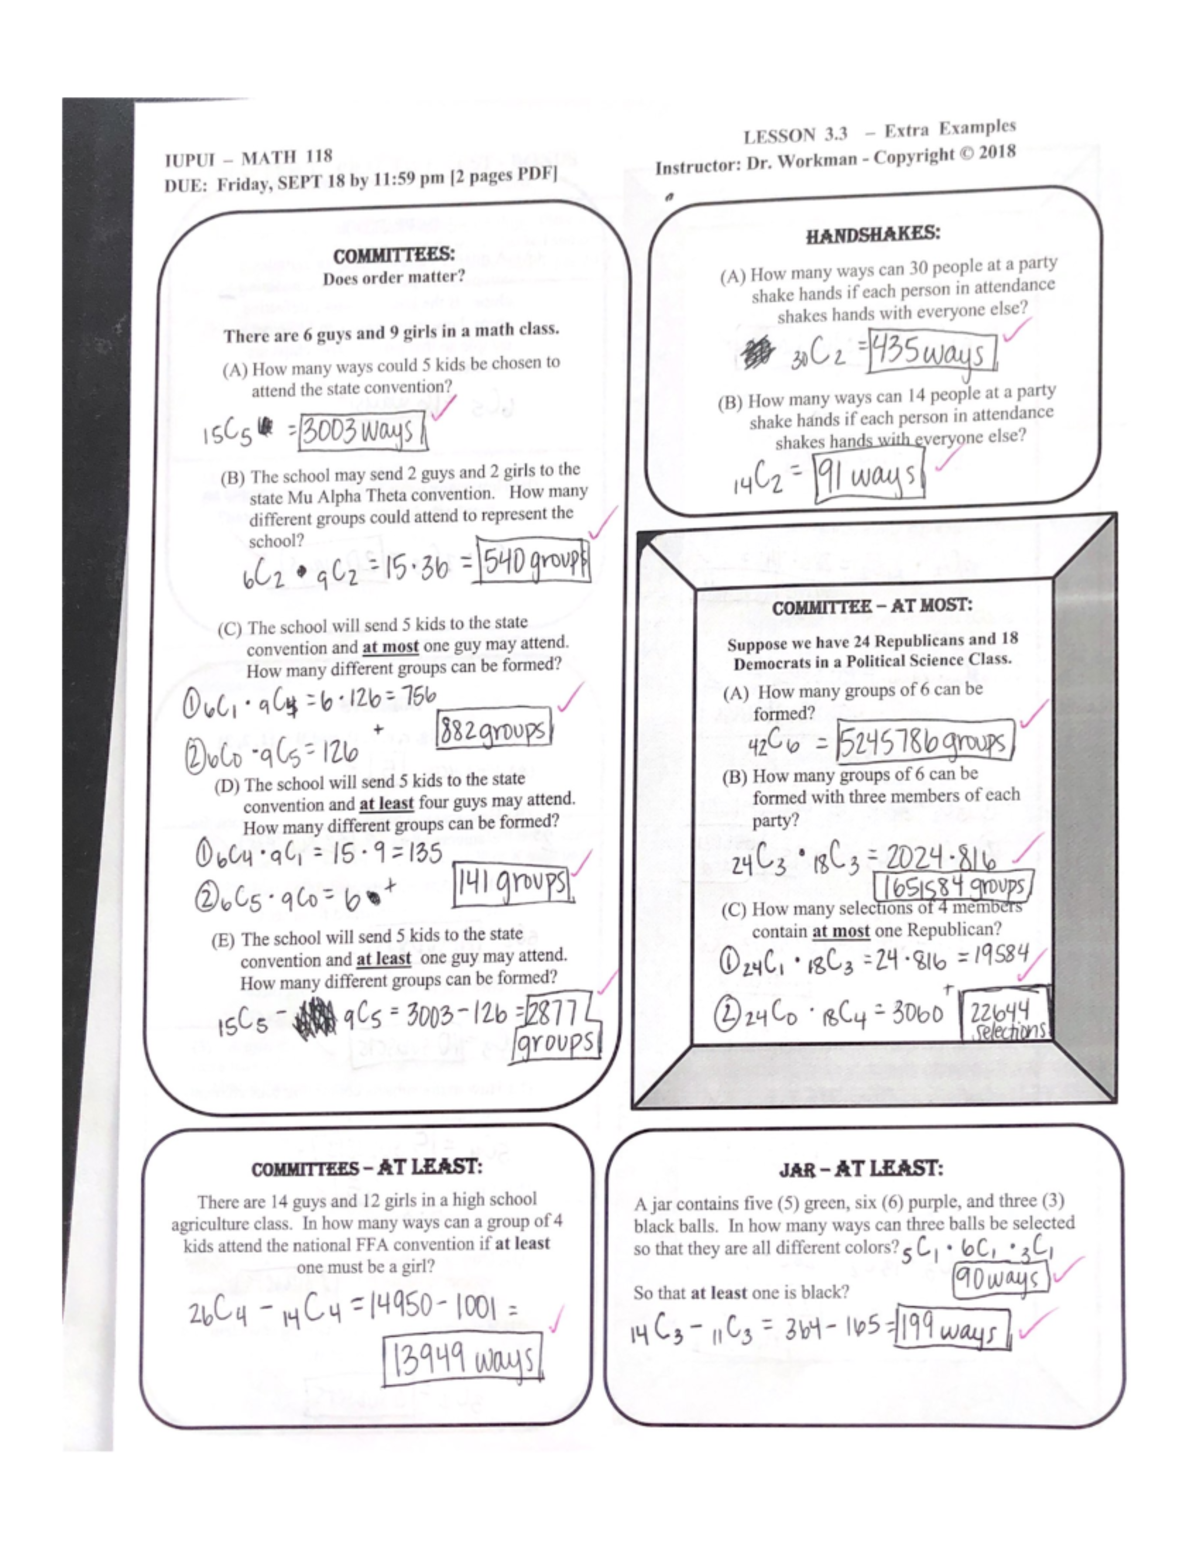 IUPUI – MATH 118
DUE: Friday, SEPT 18 by 11:59 pm [2 pages PDF]
LESSON 3.3 – Extra Examples
Instructor: Dr. Workman - Copyright © 2018
COMMITTEES:
Does order matter?
There are 6 guys and 9 girls in a math class.
(A) How many ways could 5 kids be chosen to
attend the state convention?
15C5 = 3003 ways
(B) The school may send 2 guys and 2 girls to the
state Mu Alpha Theta convention. How many
different groups could attend to represent the
school?
6C2 • 9C2 = 15 · 36 = 540 groups
(C) The school will send 5 kids to the state
convention and at most one guy may attend.
How many different groups can be formed?
① 6C1 · 9C4 = 6 · 126 = 756
+
882 groups
② 6C0 · 9C5 = 126
(D) The school will send 5 kids to the state
convention and at least four guys may attend.
How many different groups can be formed?
① 6C4 · 9C1 = 15 · 9 = 135
② 6C5 · 9C0 = 6 +
141 groups
(E) The school will send 5 kids to the state
convention and at least one guy may attend.
How many different groups can be formed?
15C5 - 9C5 = 3003 - 126 = 2877
groups
HANDSHAKES:
(A) How many ways can 30 people at a party
shake hands if each person in attendance
shakes hands with everyone else?
30C2 = 435 ways
(B) How many ways can 14 people at a party
shake hands if each person in attendance
shakes hands with everyone else?
14C2 = 91 ways
COMMITTEE – AT MOST:
Suppose we have 24 Republicans and 18
Democrats in a Political Science Class.
(A) How many groups of 6 can be
formed?
42C6 = 5245786 groups
(B) How many groups of 6 can be
formed with three members of each
party?
24C3 · 18C3 = 2024 · 816
1651584 groups
(C) How many selections of 4 members
contain at most one Republican?
① 24C1 · 18C3 = 24 · 816 = 19584
② 24C0 · 18C4 = 3060 +
22644
selections
COMMITTEES – AT LEAST:
There are 14 guys and 12 girls in a high school
agriculture class. In how many ways can a group of 4
kids attend the national FFA convention if at least
one must be a girl?
26C4 - 14C4 = 14950 - 1001 =
13949 ways
JAR – AT LEAST:
A jar contains five (5) green, six (6) purple, and three (3)
black balls. In how many ways can three balls be selected
so that they are all different colors? 5C1 · 6C1 · 3C1
90 ways
So that at least one is black?
14C3 - 11C3 = 364 - 165 = 199 ways